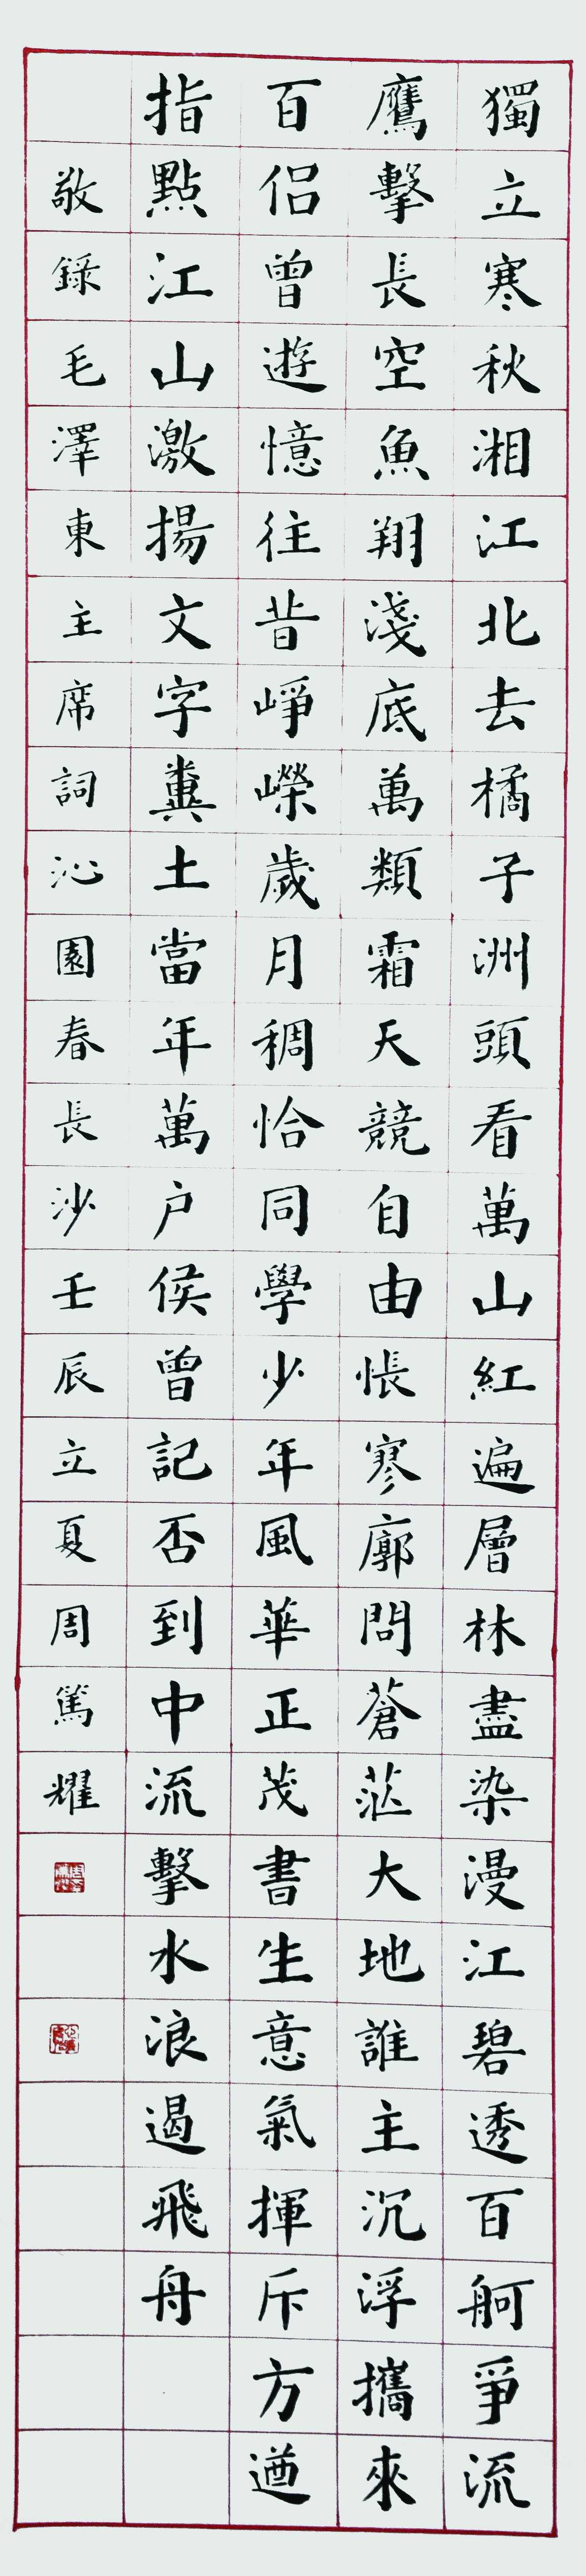 獨立寒秋湘江北去橘子洲頭看萬山紅遍層林盡染漫江碧透百舸爭流
鷹擊長空魚翔淺底萬類霜天競自由悵寥廓問蒼茫大地誰主沉浮攜來
百侶曾遊憶往昔崢嶸歲月稠恰同學少年風華正茂書生意氣揮斥方遒
指點江山激揚文字糞土當年萬户侯曾記否到中流擊水浪遏飛舟
敬錄毛澤東主席詞沁園春長沙壬辰立夏周篤耀